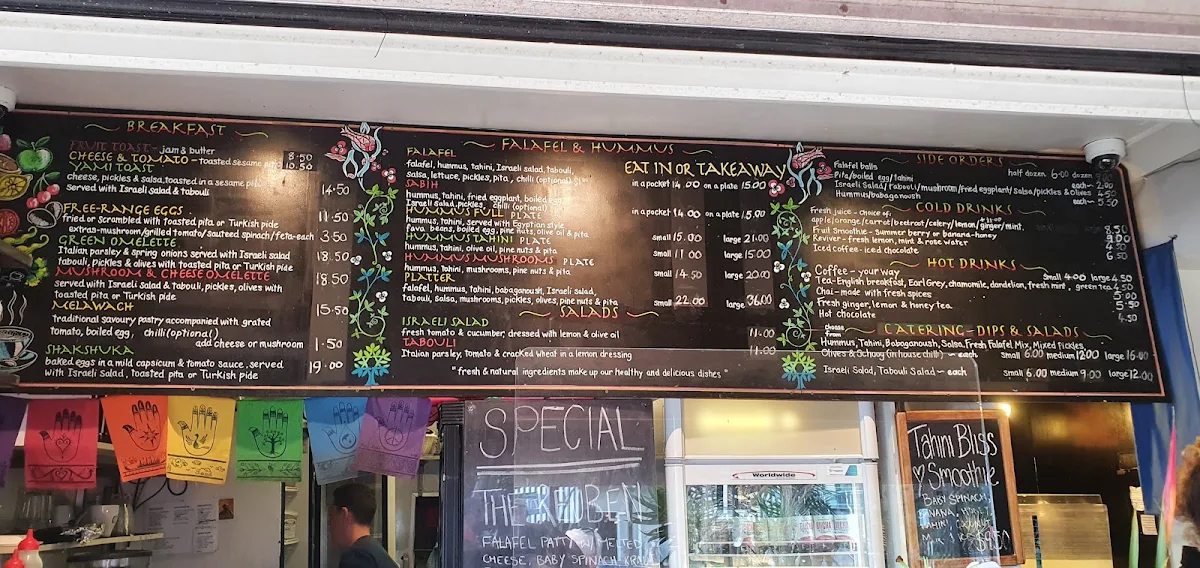 BREAKFAST
FRUIT TOAST - jam & butter
CHEESE & TOMATO - toasted sesame pita 8.50
YAMI TOAST 10.50
cheese, pickles & salsa, toasted in a sesame pita
served with Israeli salad & tabouli 14.50
FREE-RANGE EGGS
fried or scrambled with toasted pita or Turkish pide 11.50
extras-mushroom/grilled tomato/sauteed spinach/feta-each 3.50
GREEN OMELETTE
Italian parsley & spring onions served with Israeli salad 18.50
& tabouli, pickles & olives with toasted pita or Turkish pide
MUSHROOM & CHEESE OMELETTE
served with Israeli salad & tabouli, pickles, olives with 18.50
toasted pita or Turkish pide
MELAWACH
traditional savoury pastry accompanied with grated 15.50
tomato, boiled egg, chilli (optional)
add cheese or mushroom 1.50
SHAKSHUKA
baked eggs in a mild capsicum & tomato sauce, served 19.00
with Israeli salad, toasted pita or Turkish pide
FALAFEL & HUMMUS
EAT IN OR TAKEAWAY
FALAFEL
falafel, hummus, tahini, Israeli salad, tabouli,
salsa, lettuce, pickles, pita, chilli (optional) in a pocket 14.00 on a plate 15.00
SABIH
hummus, tahini, fried eggplant, boiled egg,
Israel salad, pickles, chilli (optional) in a pocket 14.00 on a plate 15.00
HUMMUS FULL PLATE
hummus, tahini, served with Egyptian style
fava beans, boiled egg, pine nuts, olive oil & pita small 15.00 large 21.00
HUMMUS TAHINI PLATE
hummus, tahini, olive oil, pine nuts & pita small 11.00 large 15.00
HUMMUS MUSHROOMS PLATE
hummus, tahini, mushrooms, pine nuts & pita small 14.50 large 20.00
PLATTER
falafel, hummus, tahini, babaganoush, Israeli salad,
tabouli, salsa, mushrooms, pickles, olives, pine nuts & pita small 22.00 large 36.00
SALADS
ISRAELI SALAD
fresh tomato & cucumber, dressed with lemon & olive oil 11.00
TABOULI
Italian parsley, tomato & cracked wheat in a lemon dressing 11.00
"fresh & natural ingredients make up our healthy and delicious dishes"
SIDE ORDERS
Falafel balls half dozen 6.00 dozen
Pita/boiled egg/tahini each- 2.00
Israeli Salad/tabouli/mushroom/fried eggplant/salsa/pickles & olives 4.50
Hummus/babaganoush each- 5.50
COLD DRINKS
Fresh juice - choice of:
apple/orange/carrot/beetroot/celery/lemon/ginger/mint.
Fruit Smoothie - summer berry or banana-honey
Reviver - fresh lemon, mint & rose water
Iced coffee - iced chocolate 6.50
HOT DRINKS
Coffee - your way small 4.00 large 4.50
Tea-English breakfast, Earl Grey, chamomile, dandelion, fresh mint, green tea 4.50
Chai-made with fresh spices 5.00
Fresh ginger, lemon & honey tea 5.50
Hot chocolate 4.50
choose from
CATERING - DIPS & SALADS
Hummus, Tahini, Babaganoush, Salsa, Fresh Falafel Mix, Mixed Pickles,
Olives & Schuog (inhouse chilli) - each small 6.00 medium 12.00 large 16.00
Israeli Salad, Tabouli Salad - each small 6.00 medium 9.00 large 12.00
SPECIAL
THE REUBEN
FALAFEL PATTY W/ MELTED
CHEESE, BABY SPINACH,
Worldwide
Tahini Bliss
Smoothie
BABY SPINACH,
BANANA,
TAHINI, COCONUT
$9.50